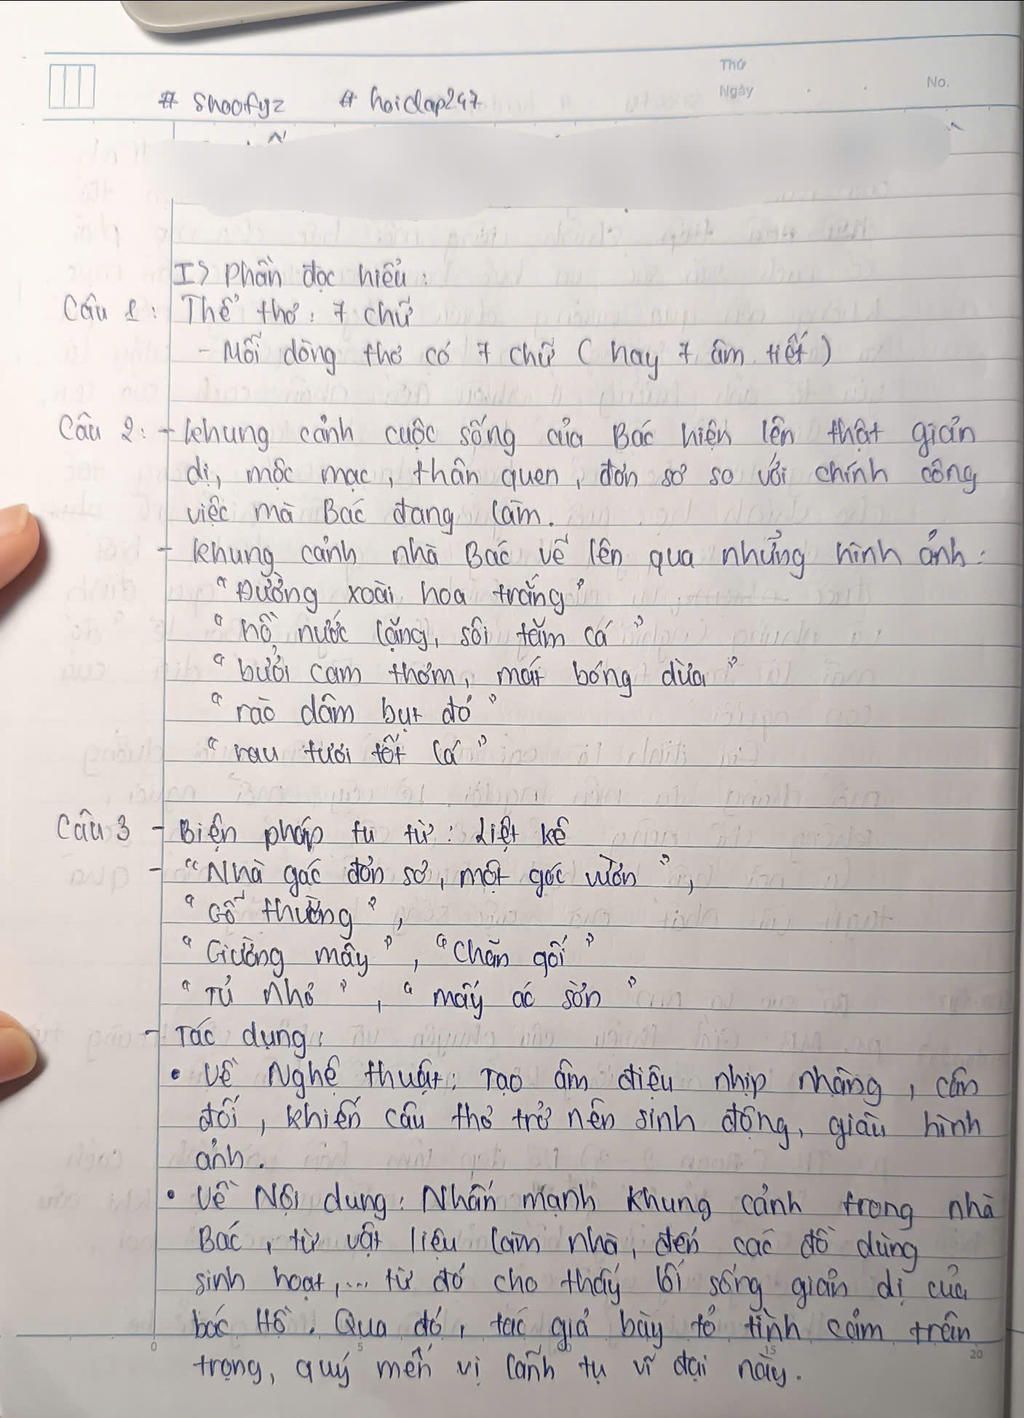 Thứ
Ngày
No.
# Snoofyz # hoidap247
I> Phần đọc hiểu:
Câu 1: Thể thơ: 7 chữ
- Mỗi dòng thơ có 7 chữ (hay 7 âm tiết)
Câu 2: - khung cảnh cuộc sống của Bác hiện lên thật giản
dị, mộc mạc, thân quen, đơn sơ so với chính công
việc mà Bác đang làm.
- khung cảnh nhà Bác vẽ lên qua những hình ảnh:
"Đường xoài hoa trắng"
"hồ nước lặng, sôi tăm cá"
"bưởi cam thơm, mát bóng dừa"
"rào dâm bụt đỏ"
"rau tươi tốt lá"
Câu 3 - Biện pháp tu từ: Liệt kê
- "Nhà gác đơn sơ, một góc vườn",
"Gỗ thường",
"Giường mây", "Chăn gối"
"Tủ nhỏ", "mấy áo sờn"
- Tác dụng:
• Về Nghệ thuật: Tạo âm điệu nhịp nhàng, cân
đối, khiến câu thơ trở nên sinh động, giàu hình
ảnh.
• Về Nội dung: Nhấn mạnh khung cảnh trong nhà
Bác, từ vật liệu làm nhà, đến các đồ dùng
sinh hoạt,... từ đó cho thấy lối sống giản dị của
bác Hồ. Qua đó, tác giả bày tỏ tình cảm trân
trọng, quý mến vị lãnh tụ vĩ đại này.
0 5 15 20